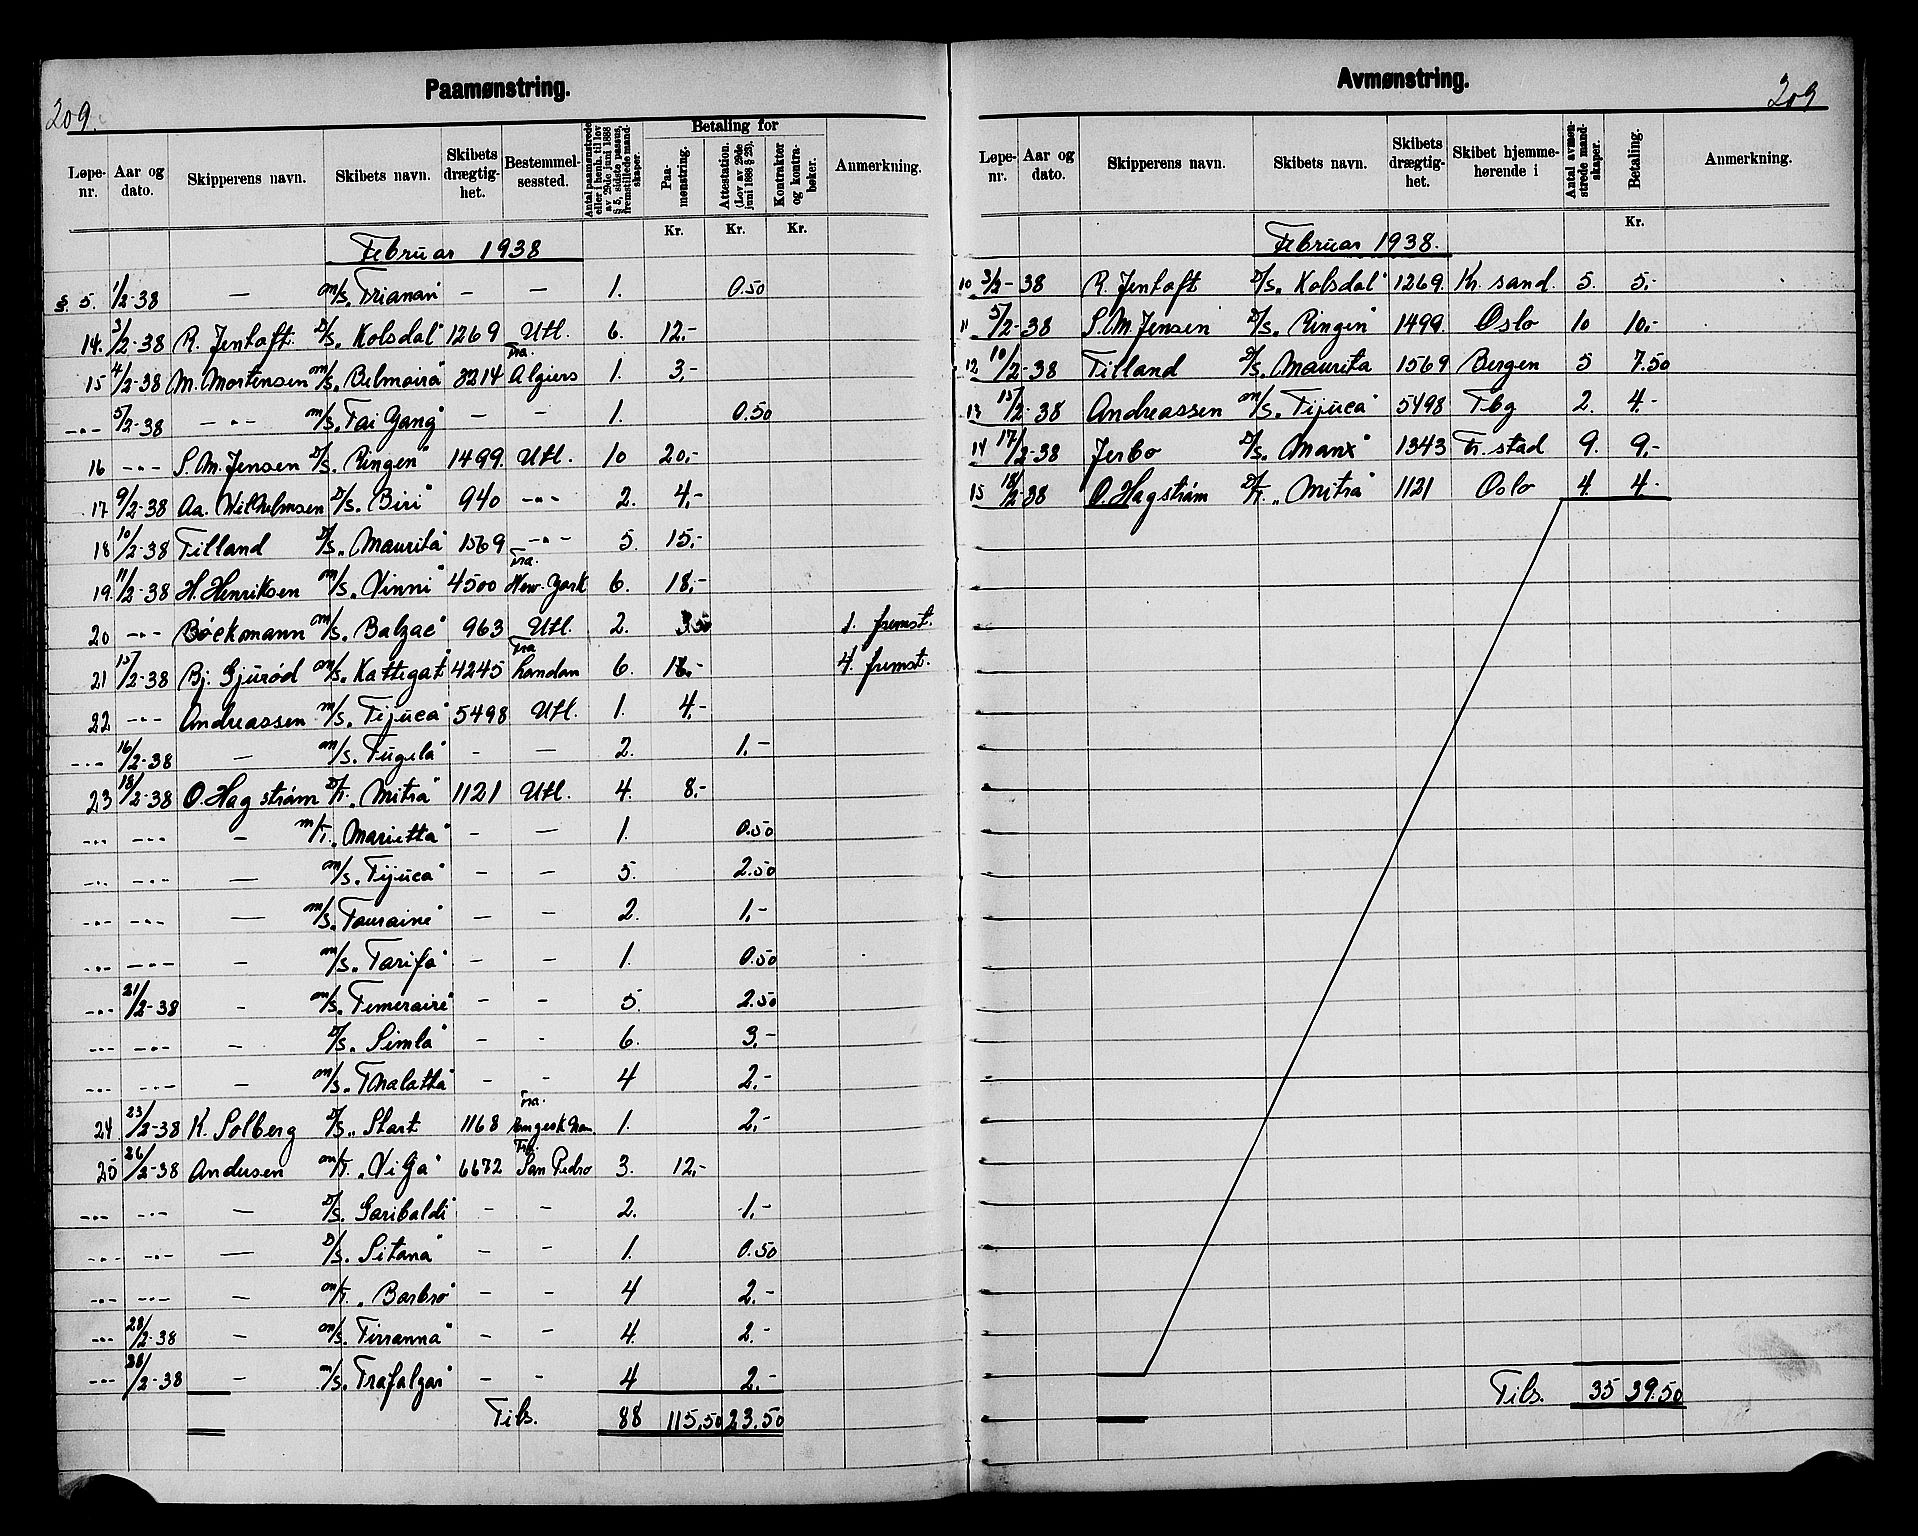 Paamønstring.
209.
Løpe-nr. | Aar og dato. | Skipperens navn. | Skibets navn. | Skibets drægtig-het. | Bestemmel-sessted. | Antal paamønstrede eller i henh. til lov av 29de juni 1888 § 5, sidste passus, fremstillede mand-skaper. | Betaling for | Paa-mønstring. | Attestation. (Lov av 29de juni 1888 § 23). | Kontrakter og kontra-bøker. | Anmerkning.
Kr. | Kr. | Kr.
Februar 1938
§ 5. | 1/2-38 | — | M/S. „Trianon" | — | — | 1. | 0.50
14. | 3/2-38 | R. Jentoft | D/S. „Kolsdal" | 1269 | Utl. | 6. | 12,-
15 | 4/2-38 | M. Mortensen | M/S. „Belmoira" | 3214 | Fra. Algiers | 1. | 3,-
-"- | 5/2-38 | -"- | M/S. „Tai Yang" | — | — | 1. | 0.50
16 | -"- | S. M. Jensen | D/S. „Ringen" | 1499. | Utl. | 10 | 20,-
17 | 9/2-38 | Aa. Wilhelmsen | D/S. „Biri" | 940 | -"- | 2. | 4,-
18 | 10/2-38 | Tilland | D/S. „Maurita" | 1569 | -"- | 5. | 15,-
19 | 11/2-38 | H. Henriksen | M/S. „Vinni" | 4500 | Fra. New-York | 6. | 18,-
20 | -"- | Böckmann | M/S. „Balzac" | 963 | Utl. | 2. | 3.50 | 1. fremst.
21 | 15/2-38 | Bj. Gjuröd | M/S. „Kattegat" | 4245 | Fra London | 6. | 16,- | 4. fremst.
22 | -"- | Andreassen | M/S. „Tijuca" | 5498 | Utl. | 1. | 4,-
-"- | 16/2-38 | — | M/S. „Tugela" | - | — | 2. | 1,-
23 | 18/2-38 | O. Hagström | D/T. „Mitra" | 1121 | Utl. | 4. | 8,-
-"- | -"- | — | M/T. „Marietta" | - | — | 1. | 0.50
-"- | -"- | — | M/S. „Tijuca" | - | — | 5. | 2.50
-"- | -"- | — | M/S. „Touraine" | — | - | 2. | 1,-
-"- | -"- | - | M/S. „Tarifa" | - | - | 1. | 0.50
-"- | 21/2-38 | - | M/S. „Temeraire" | - | - | 5. | 2.50
-"- | -"- | - | D/S. „Simla" | - | - | 6. | 3,-
-"- | -"- | - | M/S. „Thalatta" | - | - | 4 | 2,-
24 | 23/2-38 | K. Solberg | D/S. „Start | 1168 | Fra. | 1. | 2,-
25 | 26/2-38 | Andersen | M/T. „Vi Ga" | 6672 | Fra. San Pedro | 3. | 12,-
-"- | -"- | - | D/S. Garibaldi | - | - | 2. | 1,-
-"- | -"- | — | D/S. „Sitana" | - | - | 1. | 0.50
-"- | -"- | - | M/T. „Barbro | - | - | 4 | 2.-
-"- | 28/2-38 | - | M/S. „Tirranna" | - | - | 4. | 2.-
-"- | 28/2-38 | - | M/S. „Trafalgar" | - | - | 4 | 2.-
Tils. | 88 | 115,50 | 23.50
Avmønstring.
209
Løpe-nr. | Aar og dato. | Skipperens navn. | Skibets navn. | Skibets drægtig-het. | Skibet hjemme-hørende i | Antal avmøn-strede mand-skaper. | Betaling. | Anmerkning.
Kr.
Februar 1938.
10 | 3/2-38 | R. Jentoft | D/S. „Kolsdal" | 1269. | Kr. sand. | 5. | 5,-
11 | 5/2-38 | S. M. Jensen | D/S. „Ringen" | 1499. | Oslo | 10 | 10,-
12 | 10/2-38 | Tilland | D/S. „Maurita | 1569 | Bergen | 5 | 7.50
13 | 15/2-38 | Andreassen | M/S. „Tijuca" | 5498 | Tbg | 2. | 4,-
14 | 17/2-38 | Jerbo | D/S. „Manx" | 1343 | Fr. stad | 9. | 9,-
15 | 18/2-38 | O. Hagström | D/T. „Mitra" | 1121 | Oslo | 4. | 4,-
Tils. | 35 | 39.50